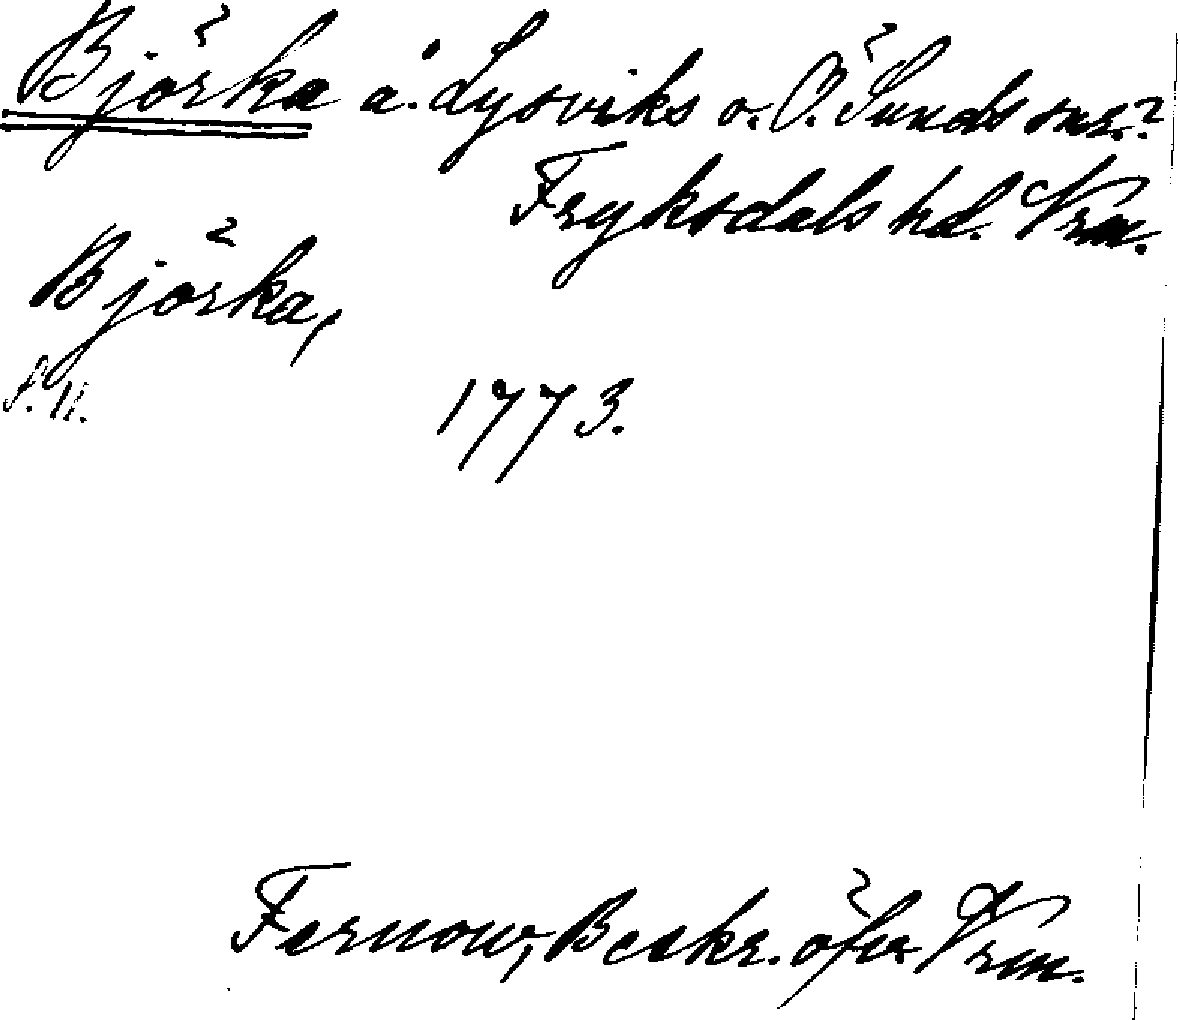 Björka å. Lysviks o. Ö. Sunds snr.?
Fryksdals hd. Vrm.
Björka,
S. 11.
1773.
Fernow, Beskr. öfver Vrm.